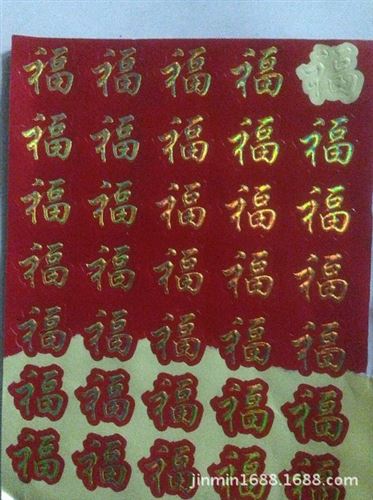 福 福 福 福 福
福 福 福 福 福
福 福 福 福 福
福 福 福 福 福
福 福 福 福 福
福 福 福 福 福
福 福 福 福 福
jinmin1688.1688.com